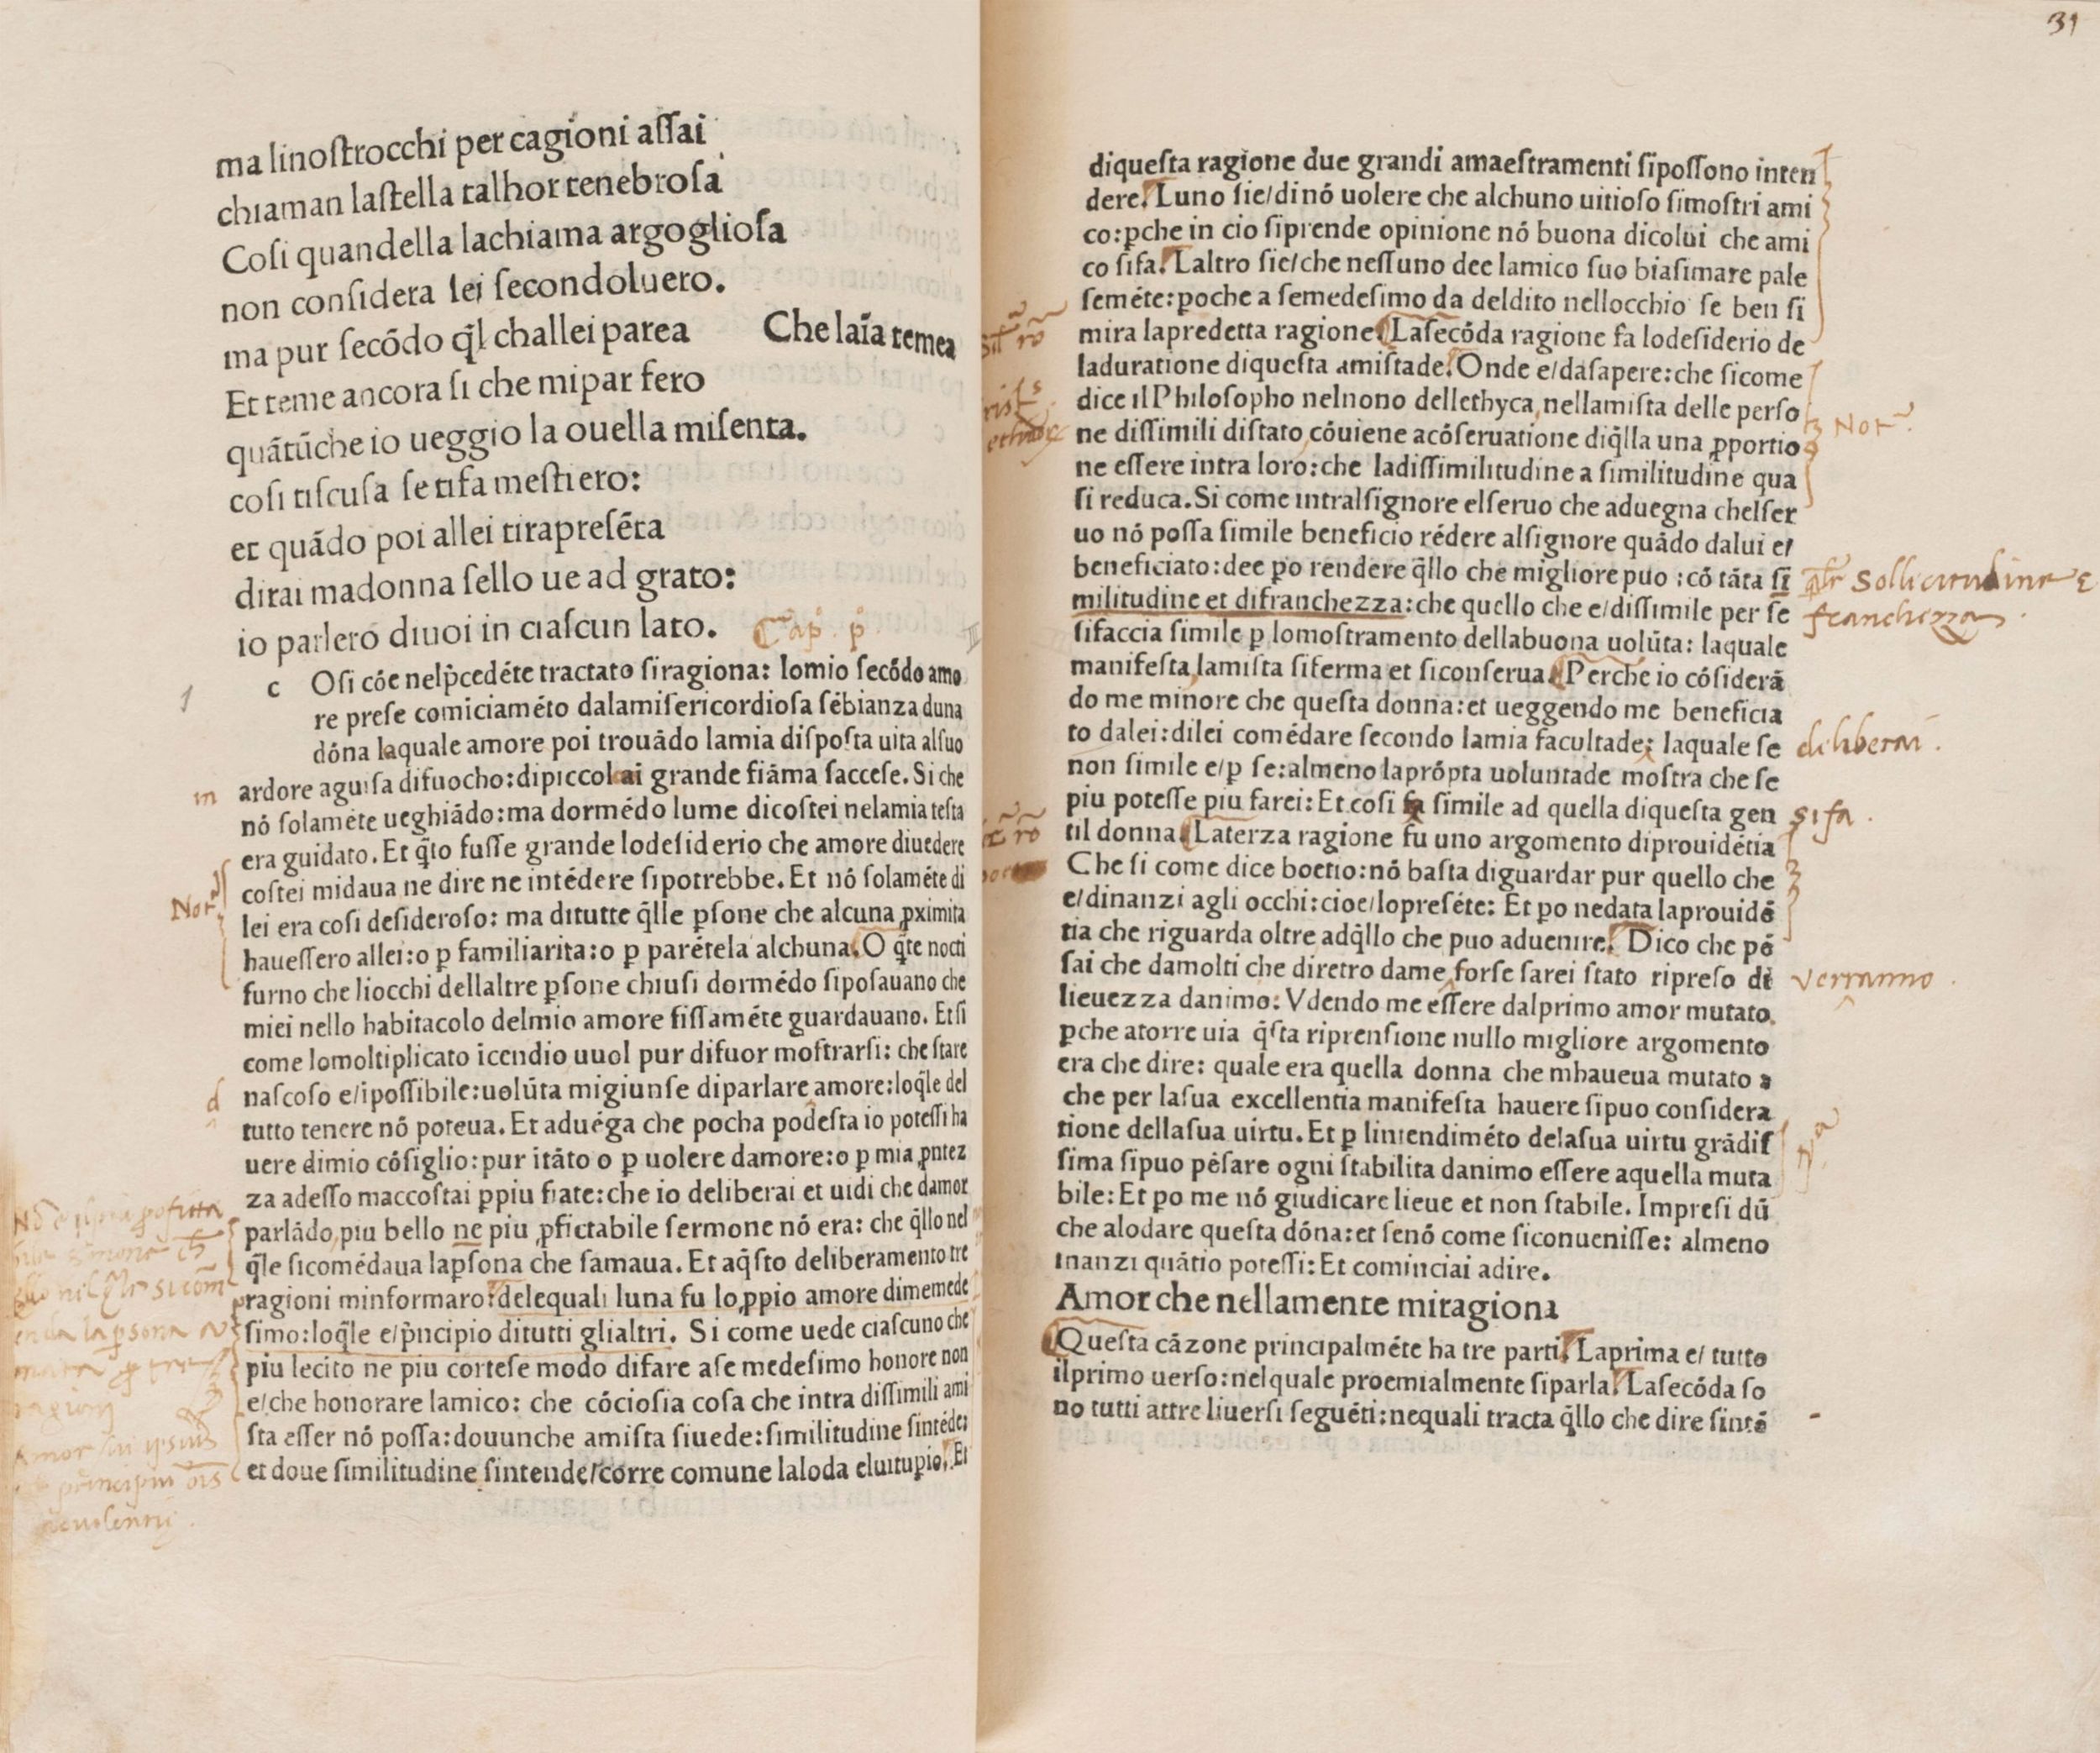 ma linoſtrocchi per cagioni aſſai
chiaman laſtella talhor tenebroſa
Coſi quandella lachiama argoglioſa
non conſidera lei ſecondoluero.
ma pur ſecōdo q̄l challei parea
Che laīa temea
Et teme ancora ſi che mipar fero
quātūche io ueggio la ouella miſenta.
coſi tiſcuſa ſe tifa meſtiero:
et quādo poi allei tirapreſēta
dirai madonna ſello ue ad grato:
io parlero diuoi in ciaſcun lato.
Cap. p.
1
c Oſi cóe nelp̄cedéte tractato ſiragiona: lomio ſecódo amo
re preſe comiciaméto dalamiſericordioſa ſébianza duna
dóna laquale amore poi trouādo lamia diſpoſta uita alſuo
ardore aguiſa difuocho: dipiccol ai grande fiāma ſacceſe. Si che
in
nó ſolaméte ueghiādo: ma dormédo lume dicoſtei nelamia teſta
era guidato. Et q̄to fuſſe grande lodeſiderio che amore diuedere
coſtei midaua ne dire ne intédere ſipotrebbe. Et nó ſolaméte di
Not
lei era coſi deſideroſo: ma ditutte q̄lle ꝑſone che alcuna ꝓximita
haueſſero allei: o ꝑ familiarita: o ꝑ parétela alchuna. O q̄te nocti
furno che liocchi dellaltre ꝑſone chiuſi dormédo ſipoſauano che
miei nello habitacolo delmio amore fiſſaméte guardauano. Et ſi
come lomoltiplicato īcendio uuol pur difuor moſtrarſi: che ſtare
naſcoſo e/ īpoſſibile: uolúta migiunſe diparlare amore: loq̄le del
d
tutto tenere nó poteua. Et aduéga che pocha podeſta io poteſſi ha
uere dimio cóſiglio: pur itāto o ꝑ uolere damore: o ꝑ mia ꝓntez
za adeſſo maccoſtai ꝑpiu fiate: che io deliberai et uidi che damor
parlādo, piu bello ne piu ꝓfictabile ſermone nó era: che q̄llo nel
q̄le ſicomédaua laꝑſona che ſamaua. Et aq̄ſto deliberamento tre
ragioni minformaro: delequali luna fu lo ꝓpio amore dimemede
ſimo: loq̄le e/ p̄ncipio ditutti glialtri. Si come uede ciaſcuno che
piu lecito ne piu corteſe modo difare aſe medeſimo honore non
e/ che honorare lamico: che cócioſia coſa che intra diſſimili ami
ſta eſſer nó poſſa: douunche amiſta ſiuede: ſimilitudine ſintéde:
et doue ſimilitudine ſintende/ corre comune laloda eluituꝑio. Et
31
diqueſta ragione due grandi amaeſtramenti ſipoſſono inten
dere. Luno ſie/ dinó uolere che alchuno uitioſo ſimoſtri ami
co: ꝑche in cio ſiprende opinione nó buona dicolui che ami
co ſifa. Laltro ſie/ che neſſuno dee lamico ſuo biaſimare pale
ſeméte: ꝑoche a ſemedeſimo da deldito nellocchio ſe ben ſi
mira lapredetta ragione. Laſecóda ragione fa lodeſiderio de
laduratione diqueſta amiſtade. Onde e/ daſapere: che ſicome
dice il Philoſopho nelnono dellethyca, nellamiſta delle perſo
Not
ne diſſimili diſtato, cóuiene acóſeruatione diq̄lla una ꝓportio
ne eſſere intra loro: che ladiſſimilitudine a ſimilitudine qua
ſi reduca. Si come intralſignore elſeruo che aduegna chelſer
uo nó poſſa ſimile beneficio rédere alſignore quādo dalui e/
beneficiato: dee ꝑo rendere q̄llo che migliore puo: có tāta ſi
ſollicitudine e
militudine et difranchezza: che quello che e/ diſſimile per ſe
franchezza.
ſifaccia ſimile ꝑ lomoſtramento dellabuona uolúta: laquale
manifeſta, lamiſta ſiferma et ſiconſerua. Perche io cóſiderā
do me minore che queſta donna: et ueggendo me beneficia
to dalei: dilei comédare ſecondo lamia facultade; laquale ſe
deliberai.
non ſimile e/ ꝑ ſe: almeno laprópta uoluntade moſtra che ſe
piu poteſſe piu farei: Et coſi fa ſimile ad quella diqueſta gen
si fa.
til donna. Laterza ragione fu uno argomento diprouidétia
Che ſi come dice boetio: nó baſta diguardar pur quello che
e/ dinanzi agli occhi: cioe/ lopreſéte: Et ꝑo nedata laprouidé
tia che riguarda oltre adq̄llo che puo aduenire. Dico che pé
ſai che damolti che diretro dame forſe ſarei ſtato ripreſo di
verranno.
lieuezza danimo: Vdendo me eſſere dalprimo amor mutato.
ꝑche atorre uia q̄ſta riprenſione nullo migliore argomento
era che dire: quale era quella donna che mhaueua mutato a
che per laſua excellentia manifeſta hauere ſipuo conſidera
tione dellaſua uirtu. Et ꝑ lintendiméto delaſua uirtu grādiſ
ſima ſipuo péſare ogni ſtabilita danimo eſſere aquella muta
bile: Et ꝑo me nó giudicare lieue et non ſtabile. Impreſi dū
che alodare queſta dóna: et ſenó come ſiconueniſſe: almeno
inanzi quātio poteſſi: Et cominciai adire.
Amor che nellamente miragiona
Queſta cázone principalméte ha tre parti. Laprima e/ tutto
ilprimo uerſo: nelquale proemialmente ſiparla. Laſecóda ſo
no tutti attre liuerſi ſeguéti: nequali tracta q̄llo che dire ſinté